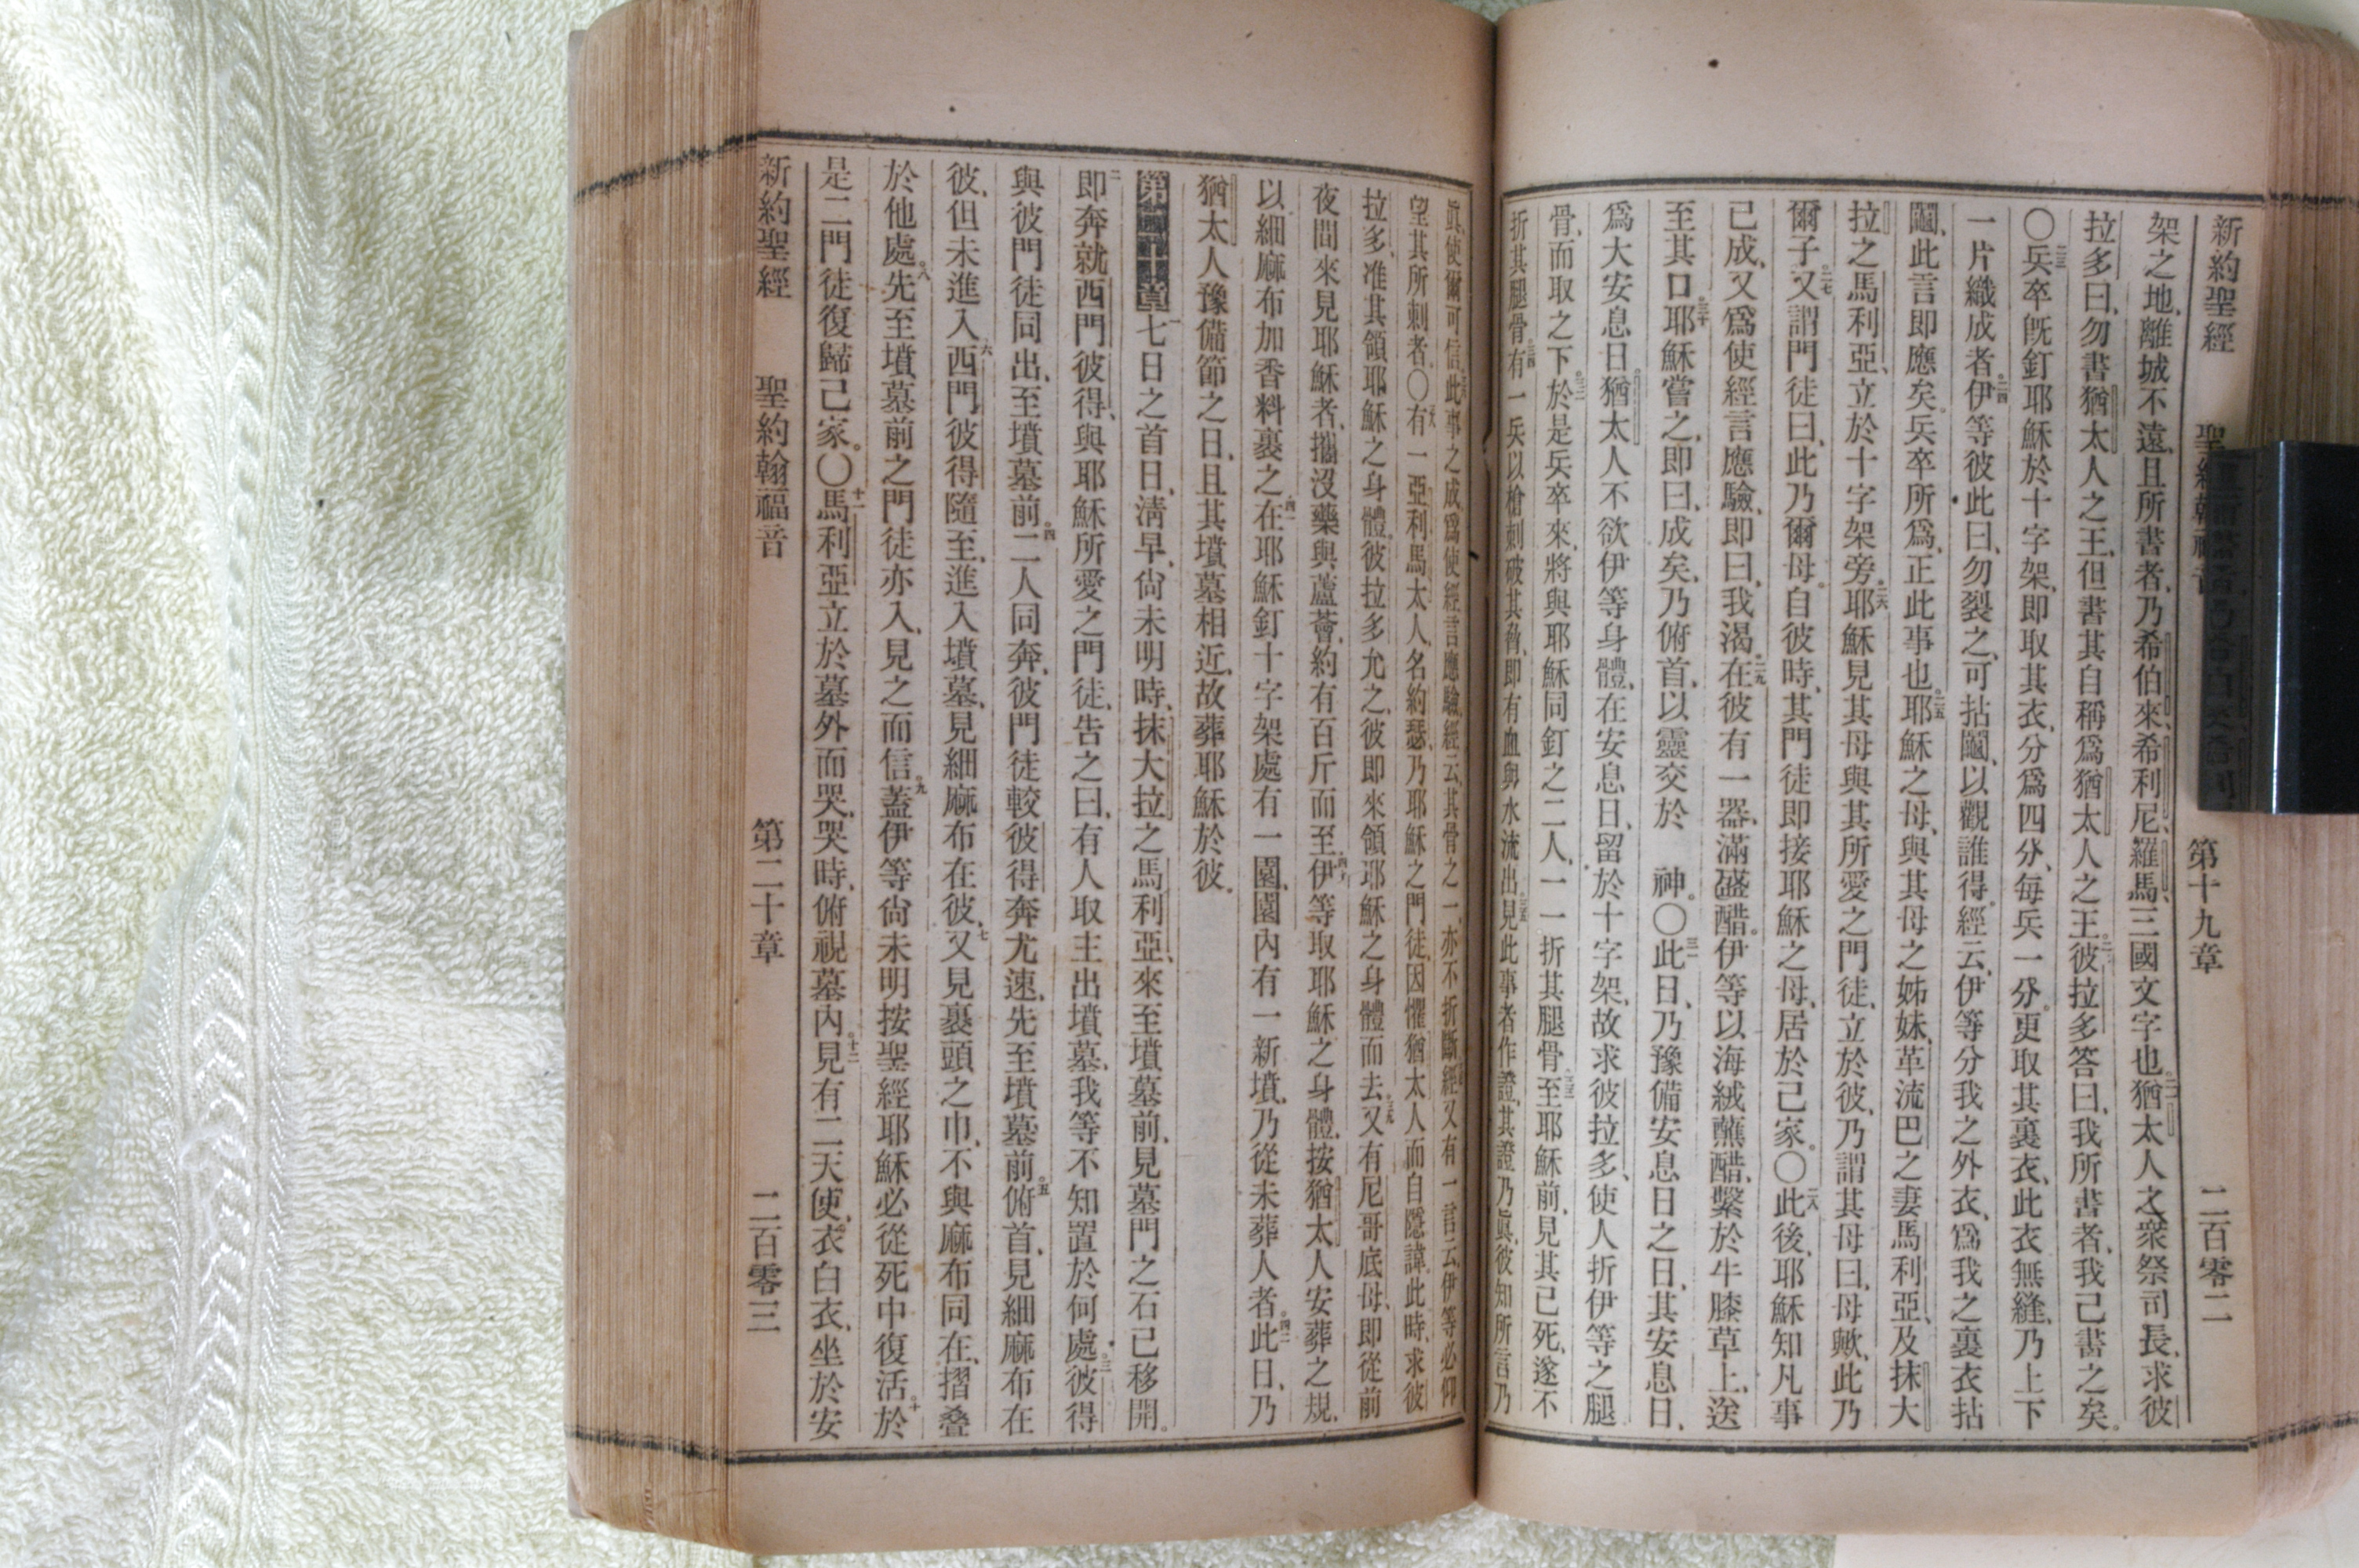 新約聖經 第十九章 二百零二
架之地、離城不遠、且所書者、乃希伯來、希利尼、羅馬、三國文字也、猶太人之衆祭司長、求彼
拉多曰、勿書猶太人之王、但書其自稱爲猶太人之王、彼拉多答曰、我所書者、我已書之矣。
〇二三兵卒旣釘耶穌於十字架、即取其衣、分爲四分、每兵一分、更取其裏衣、此衣無縫、乃上下
一片織成者。二四伊等彼此曰、勿裂之、可拈鬮、以觀誰得。經云、伊等分我之外衣、爲我之裏衣拈
鬮、此言即應矣。兵卒所爲、正此事也。二五耶穌之母、與其母之姊妹、革流巴之妻馬利亞、及抹大
拉之馬利亞、立於十字架旁。二六耶穌見其母與其所愛之門徒、立於彼、乃謂其母曰、母歟、此乃
爾子。二七又謂門徒曰、此乃爾母。自彼時、其門徒即接耶穌之母、居於己家。〇二八此後、耶穌知凡事
已成、又爲使經言應驗、即曰、我渴。二九在彼有一器、滿盛醋。伊等以海絨蘸醋、繫於牛膝草上、送
至其口。三十耶穌嘗之、即曰、成矣、乃俯首、以靈交於 神。〇三一此日、乃豫備安息日之日、其安息日、
爲大安息日。猶太人不欲伊等身體、在安息日、留於十字架、故求彼拉多、使人折伊等之腿
骨、而取之下。三二於是兵卒來、將與耶穌同釘之二人、一一折其腿骨。三三至耶穌前、見其已死、遂不
折其腿骨。三四有一兵以槍刺破其脅、即有血與水流出。三五見此事者作證、其證乃眞、彼知所言乃
眞、使爾可信。三六此事之成、爲使經言應驗、經云、其骨之一、亦不折斷。三七經又有一言云、伊等必仰
望其所刺者。〇三八有一亞利馬太人、名約瑟、乃耶穌之門徒、因懼猶太人而自隱諱、此時、求彼
拉多、准其領耶穌之身體。彼拉多允之、彼即來領耶穌之身體而去。三九又有尼哥底母、即從前
夜間來見耶穌者、攜沒藥與蘆薈、約有百斤而至。四十伊等取耶穌之身體、按猶太人安葬之規、
以細麻布加香料裹之。四一在耶穌釘十字架處有一園、園內有一新墳、乃從未葬人者。四二此日、乃
猶太人豫備節之日、且其墳墓相近、故葬耶穌於彼。
第二十章 一七日之首日、淸早、尙未明時、抹大拉之馬利亞、來至墳墓前、見墓門之石已移開。
二即奔就西門彼得、與耶穌所愛之門徒、告之曰、有人取主出墳墓、我等不知置於何處。三彼得
與彼門徒同出、至墳墓前。四二人同奔、彼門徒較彼得奔尤速、先至墳墓前。五俯首、見細麻布在
彼、但未進入。六西門彼得隨至、進入墳墓、見細麻布在彼、七又見裹頭之巾、不與麻布同在、摺叠
於他處。八先至墳墓前之門徒亦入、見之而信。九蓋伊等尙未明按聖經耶穌必從死中復活。十於
是二門徒復歸己家。〇十一馬利亞立於墓外而哭、哭時、俯視墓內。十二見有二天使、衣白衣、坐於安
新約聖經 聖約翰福音 第二十章 二百零三